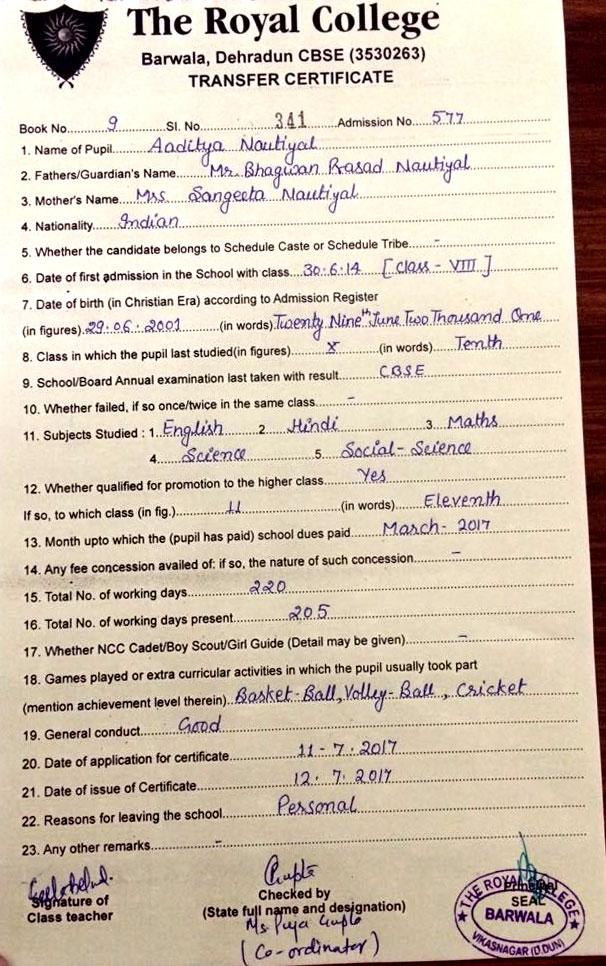 The Royal College
Barwala, Dehradun CBSE (3530263)
TRANSFER CERTIFICATE
Book No. 9 Sl. No. 341 Admission No. 577
1. Name of Pupil Aaditya Nautiyal
2. Fathers/Guardian's Name Mr. Bhagwan Prasad Nautiyal
3. Mother's Name Mrs Sangeeta Nautiyal
4. Nationality Indian
5. Whether the candidate belongs to Schedule Caste or Schedule Tribe -
6. Date of first admission in the School with class 30.6.14 [Class - VIII]
7. Date of birth (in Christian Era) according to Admission Register
(in figures) 29.06.2001 (in words) Twenty Nineth June Two Thousand One
8. Class in which the pupil last studied(in figures) X (in words) Tenth
9. School/Board Annual examination last taken with result CBSE
10. Whether failed, if so once/twice in the same class -
11. Subjects Studied : 1. English 2 Hindi 3. Maths
4. Science 5. Social-Science
12. Whether qualified for promotion to the higher class Yes
If so, to which class (in fig.) 11 (in words) Eleventh
13. Month upto which the (pupil has paid) school dues paid March - 2017
14. Any fee concession availed of: if so, the nature of such concession -
15. Total No. of working days 220
16. Total No. of working days present 205
17. Whether NCC Cadet/Boy Scout/Girl Guide (Detail may be given) -
18. Games played or extra curricular activities in which the pupil usually took part
(mention achievement level therein) Basket-Ball, Volley-Ball, Cricket
19. General conduct Good
20. Date of application for certificate 11-7.2017
21. Date of issue of Certificate 12.7.2017
22. Reasons for leaving the school Personal
23. Any other remarks -
Signature of
Class teacher
Gupta
Checked by
(State full name and designation)
Ms. Puja Gupta
(Co-ordinator)
Principal
SEAL
THE ROYAL COLLEGE
BARWALA
VIKASNAGAR (D.DUN)